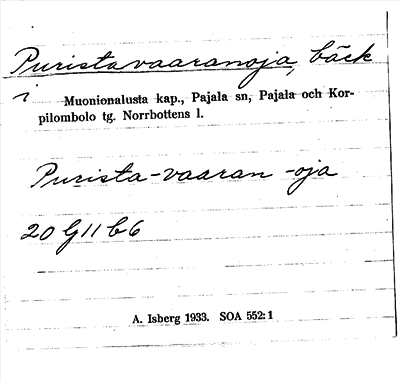 Puristavaaranoja, bäck
i Muonionalusta kap., Pajala sn, Pajala och Kor-
pilombolo tg. Norrbottens l.
Purista-vaaran -oja
20 G11 b6
A. Isberg 1933. SOA 552:1